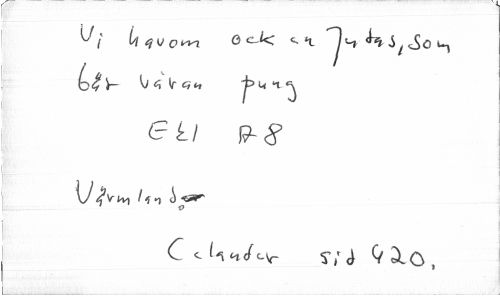 Vi havom ock en Judas, som
bär våran pung
Ek1 A8
Värmland.
Celander sid 420.